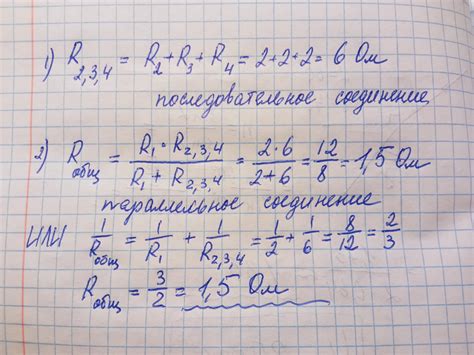 1) R2,3,4 = R2 + R3 + R4 = 2+2+2 = 6 Ом
последовательное соединение
2) Rобщ = R1 · R2,3,4 / R1 + R2,3,4 = 2·6 / 2+6 = 12/8 = 1,5 Ом
параллельное соединение
ИЛИ 1/Rобщ = 1/R1 + 1/R2,3,4 = 1/2 + 1/6 = 8/12 = 2/3
Rобщ = 3/2 = 1,5 Ом